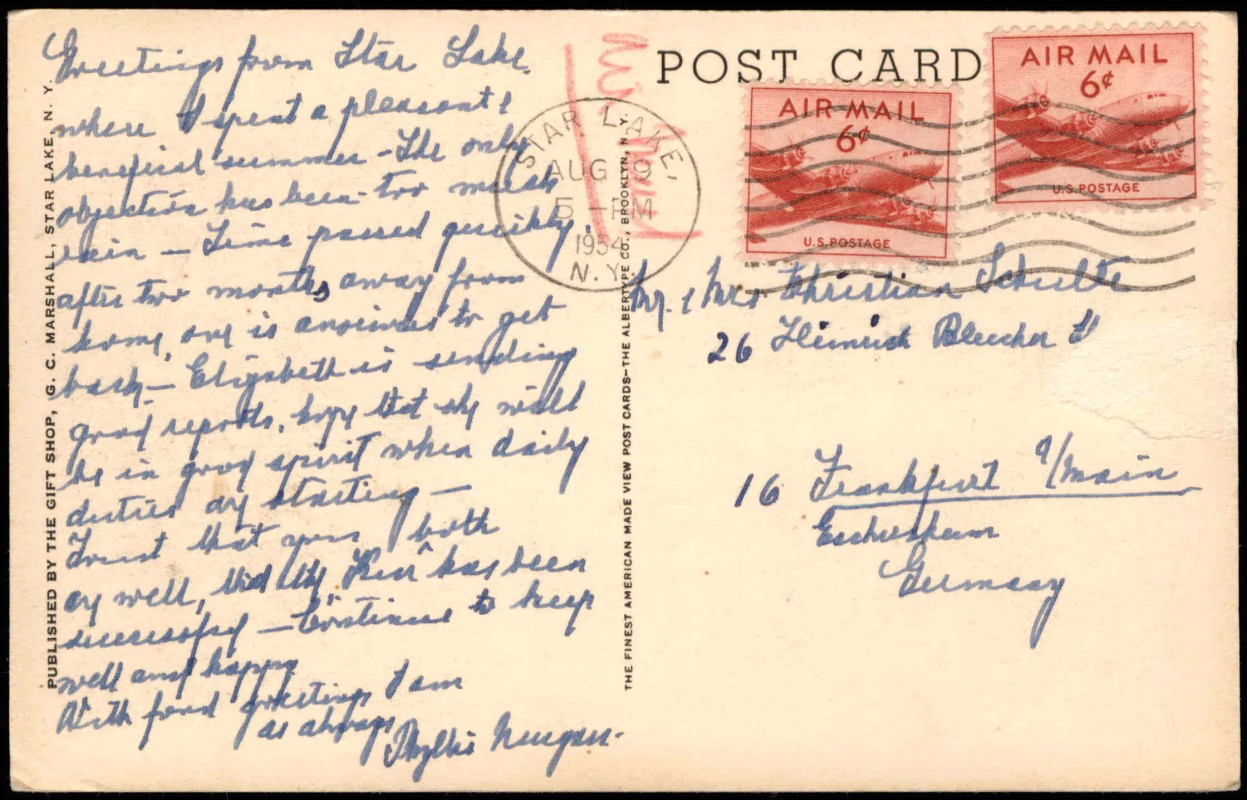 Greetings from Star Lake.
where I spent a pleasant &
benefical summer - The only
objection has been - too much
rain - Time passed quickly,
after two months away from
home, one is anxious to get
back - Elizabeth is sending
good reports, hope that she will
be in good spirit when daily
duties are starting -
Trust that you both
are well, that the "Kur" has been
successful - Continue to keep
well and happy
With fond greetings I am
as always
Phyllis
POST CARD
Air Mail
AIR MAIL
6¢
U.S. POSTAGE
AIR MAIL
6¢
U.S. POSTAGE
STAR LAKE,
AUG 9
5 - PM
1954
N.Y.
Mr. & Mrs Christian Schulte
26 Heinrich Bleicher
16 Frankfurt a/Main
Eschersheim
Germany
PUBLISHED BY THE GIFT SHOP, G. C. MARSHALL, STAR LAKE, N. Y.
THE FINEST AMERICAN MADE VIEW POST CARDS-THE ALBERTYPE CO., BROOKLYN, N.Y.